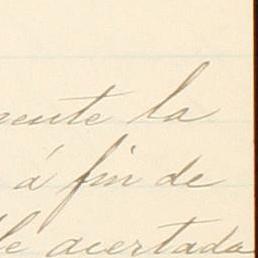 mente la
á fin de
le acertada